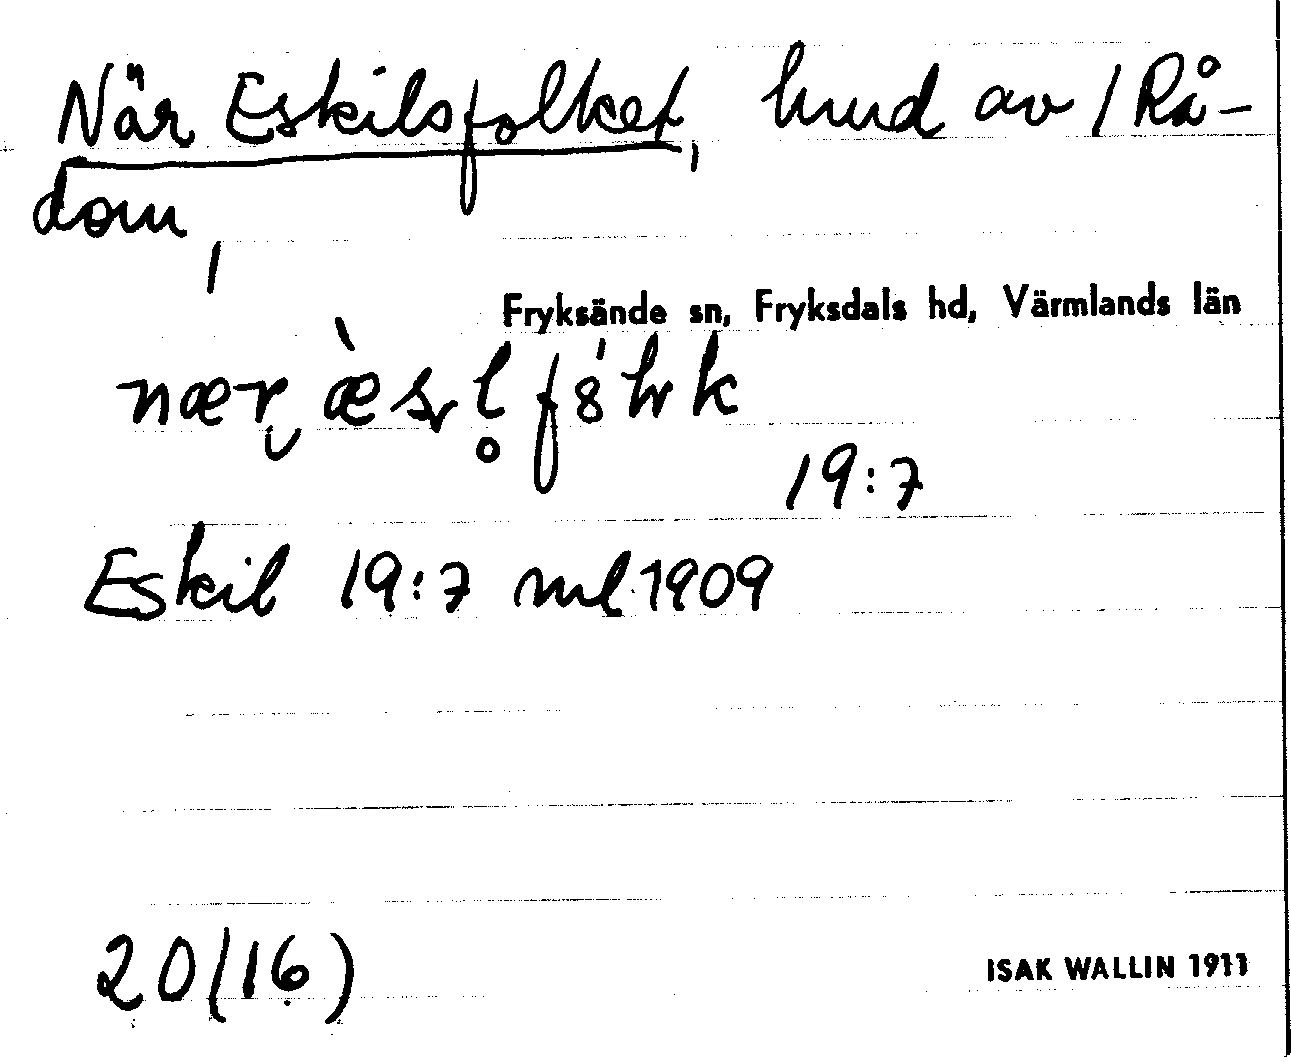 När Eskilsfolket, hmd av 1 Rå-
dom,
Fryksände sn, Fryksdals hd, Värmlands län
19:7
Eskil 19:7 ml 1909
20(16)
ISAK WALLIN 1911